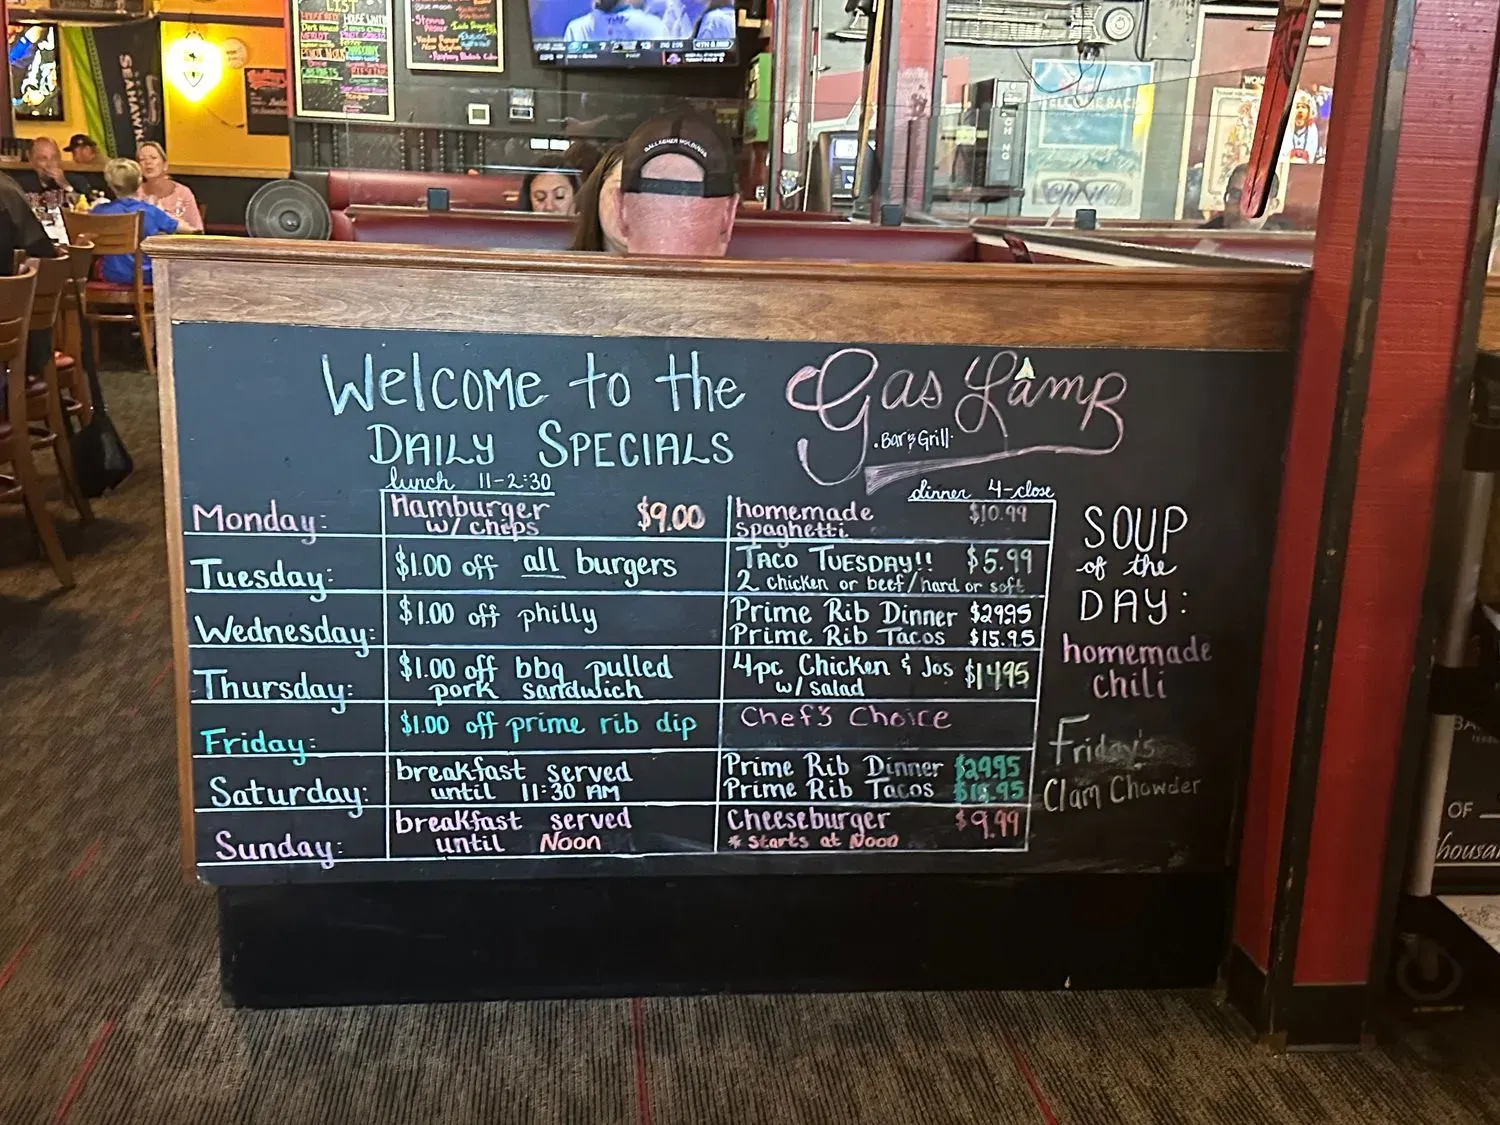 LIST
SEAHAWKS
GALLAGHER HOLDINGS
WELCOME BACK
Welcome to the Gas Lamp
Bar & Grill
DAILY SPECIALS
lunch 11-2:30
dinner 4-close
Monday: Hamburger w/ chips $9.00 homemade spaghetti $10.99
Tuesday: $1.00 off all burgers TACO TUESDAY!! $5.99
2 chicken or beef/hard or soft
Wednesday: $1.00 off philly Prime Rib Dinner $29.95
Prime Rib Tacos $15.95
Thursday: $1.00 off bbq pulled pork sandwich 4pc Chicken & Jos w/ salad $14.95
Friday: $1.00 off prime rib dip Chef's Choice
Saturday: breakfast served until 11:30 AM Prime Rib Dinner $29.95
Prime Rib Tacos $15.95
Sunday: breakfast served until Noon Cheeseburger $9.99
* Starts at Noon
SOUP
of the
DAY:
homemade
chili
Friday's
Clam Chowder
OF